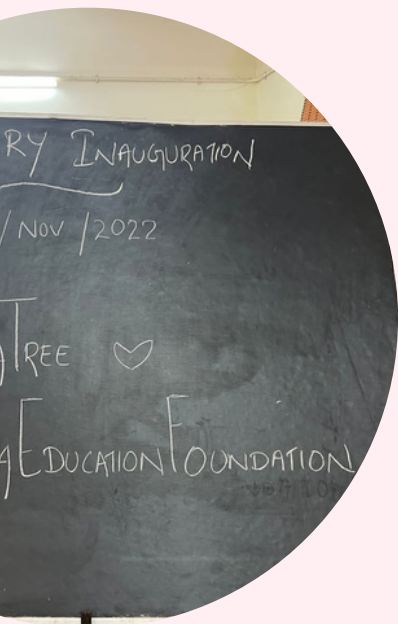 RY INAUGURATION
/ NOV / 2022
TREE ♡
EDUCATION FOUNDATION